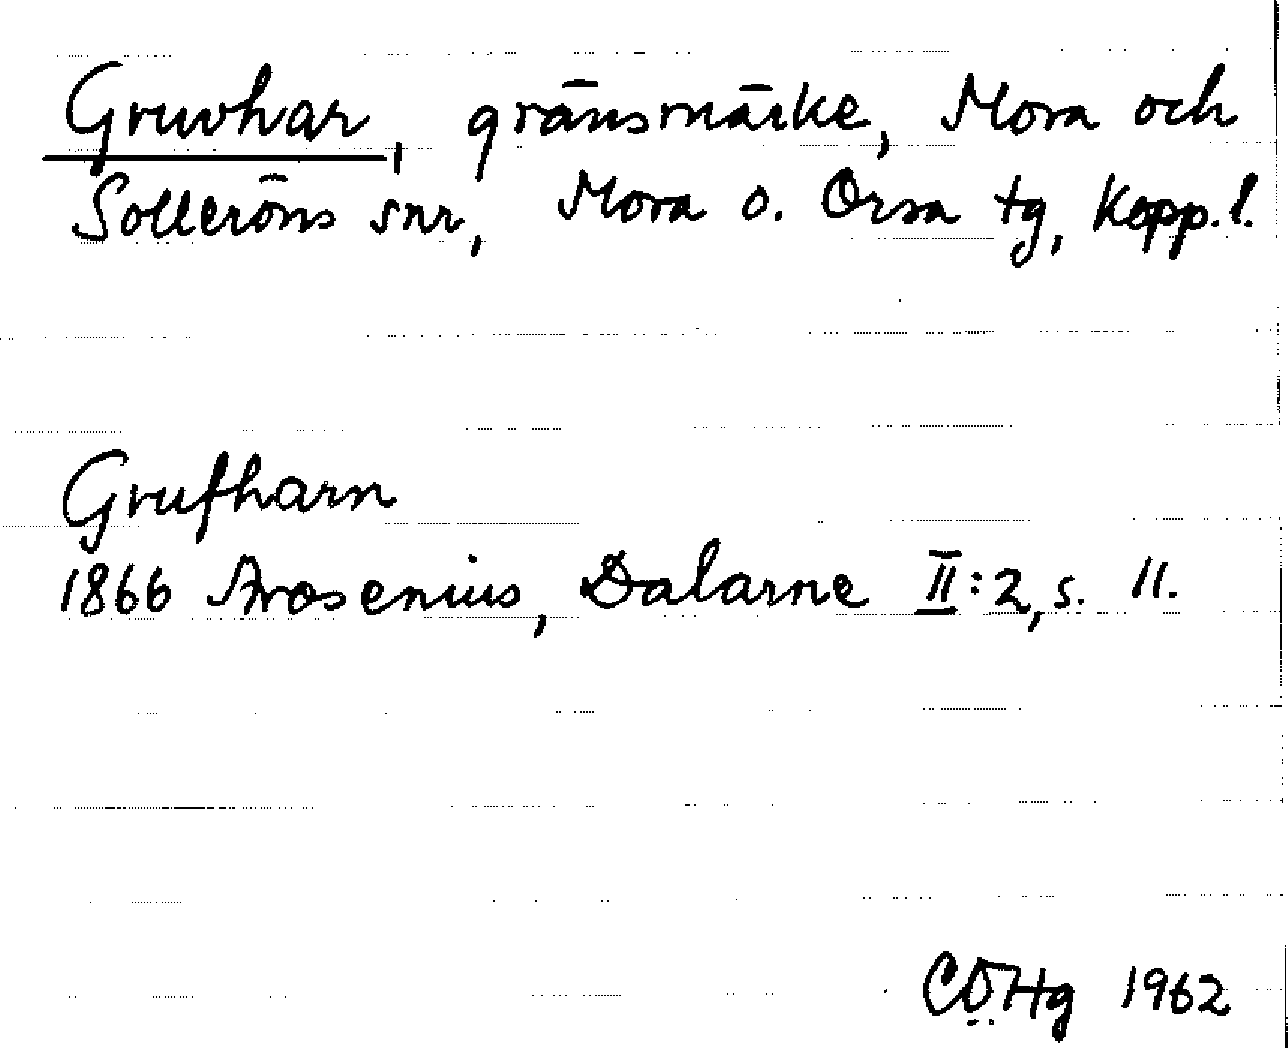 Gruvhar, gränsmärke, Mora och
Solleröns snr, Mora o. Orsa tg, Kopp. l.
Grufharn
1866 Arosenius, Dalarne II:2, s. 11.
CÖHg 1962